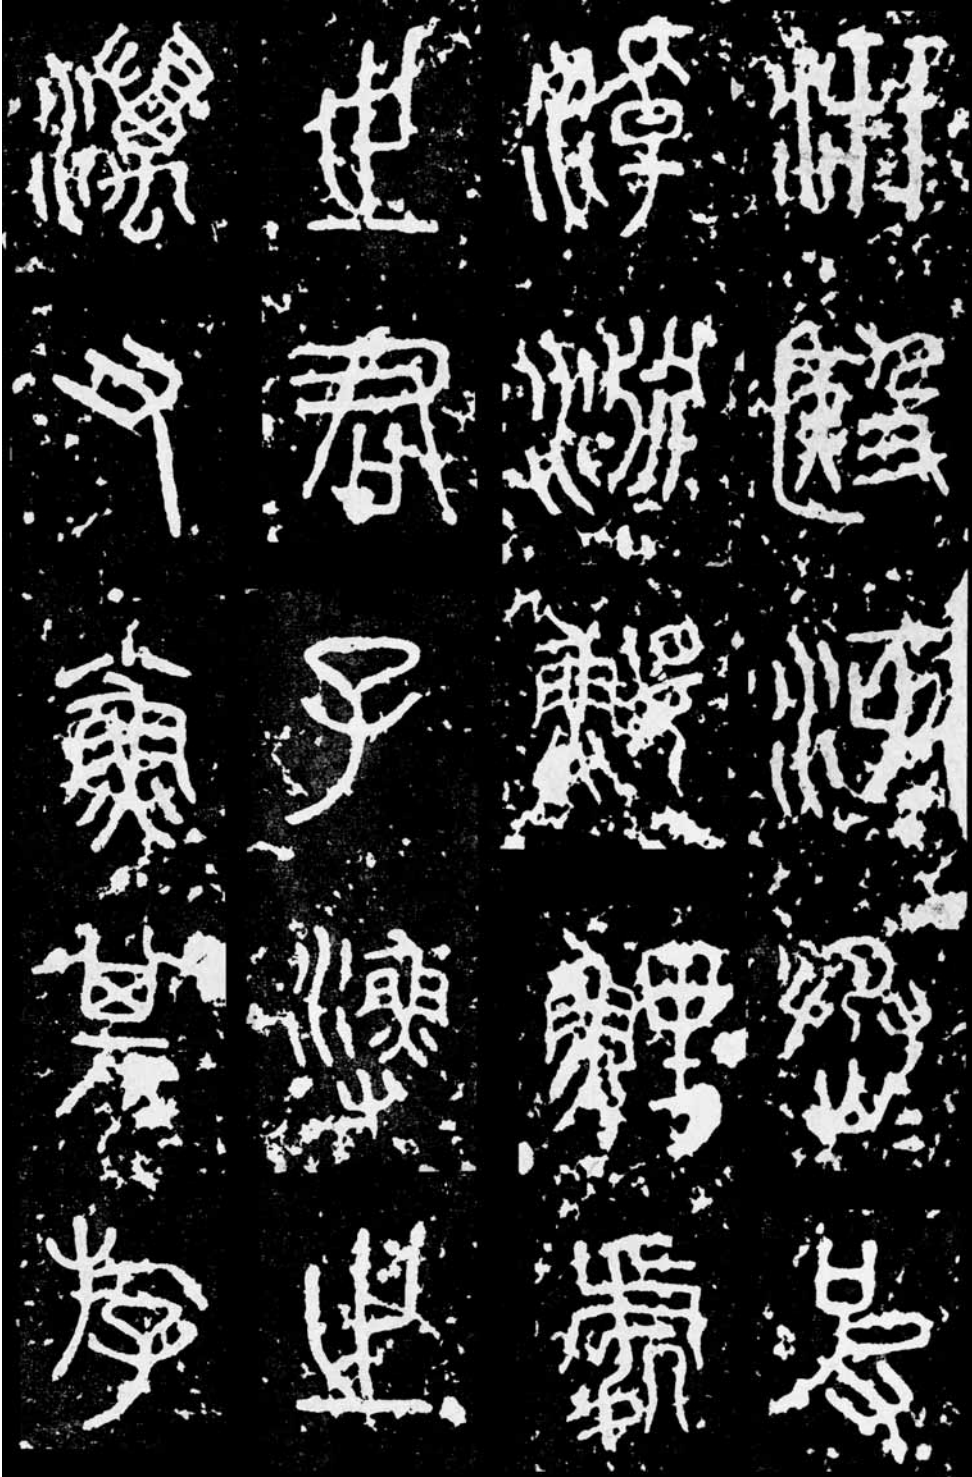 汧殹沔丞皮
淖淵鰋鯉處
之君子漁之
澫又小魚其斿